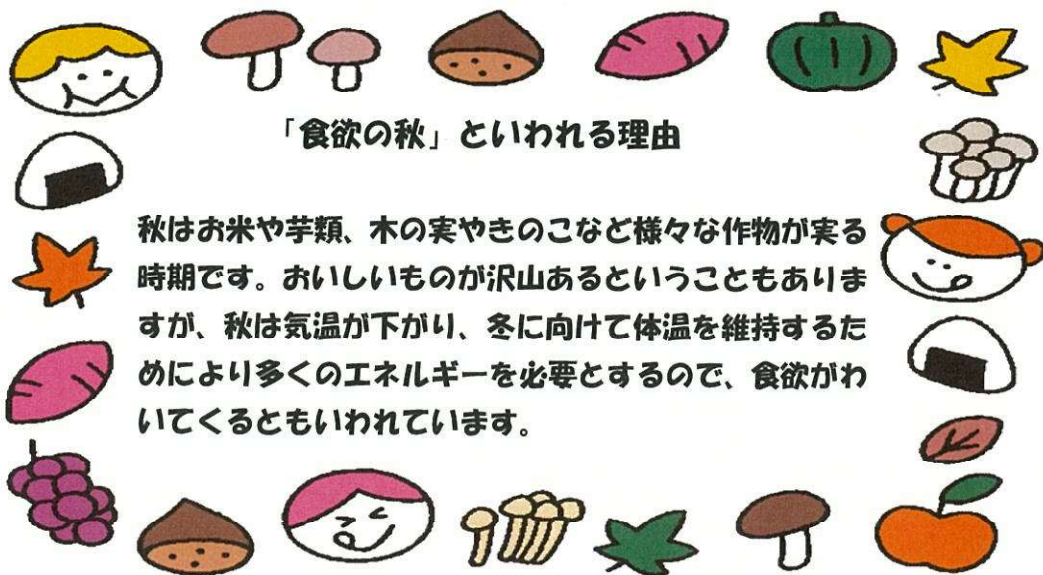 「食欲の秋」といわれる理由
秋はお米や芋類、木の実やきのこなど様々な作物が実る
時期です。おいしいものが沢山あるということもありま
すが、秋は気温が下がり、冬に向けて体温を維持するた
めにより多くのエネルギーを必要とするので、食欲がわ
いてくるともいわれています。